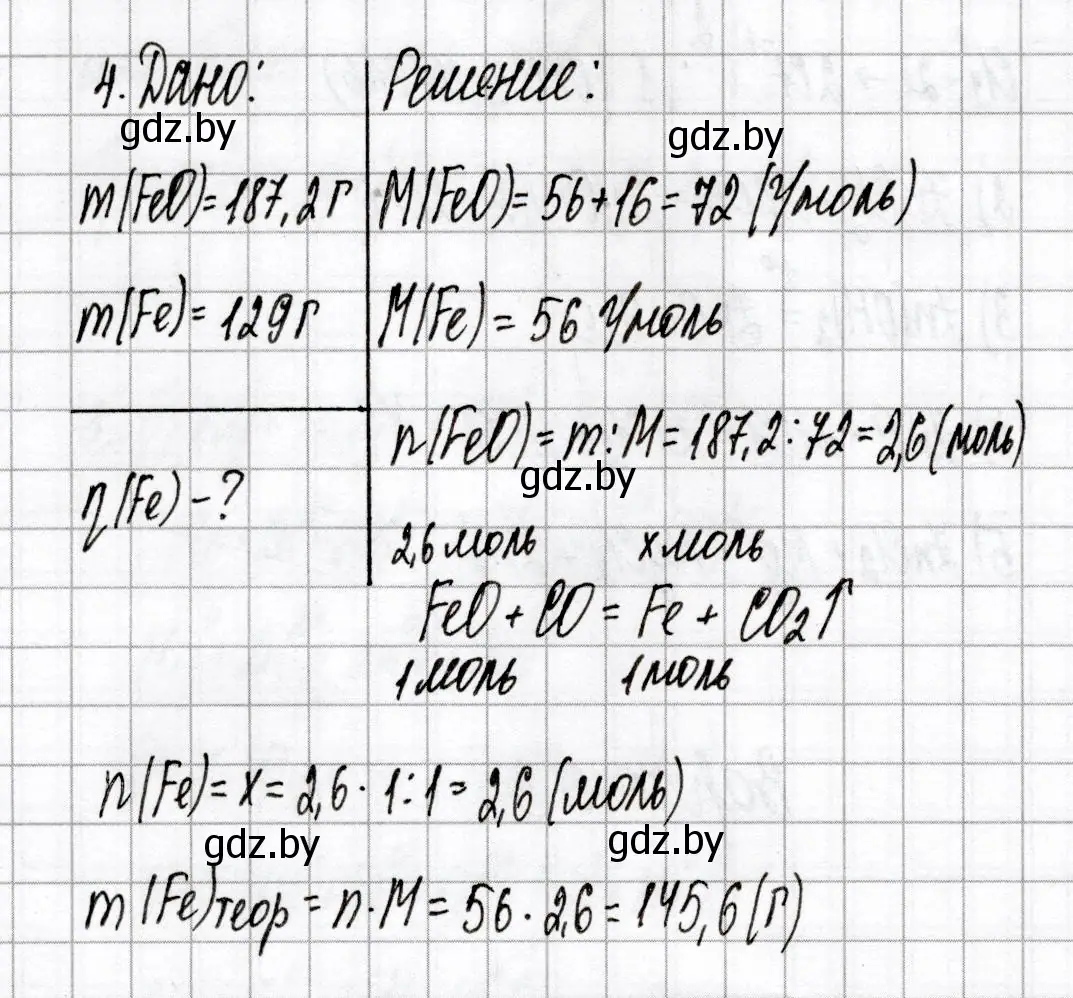 4. Дано:
gdz.by
m(FeO) = 187,2 г
m(Fe) = 129 г
η(Fe) - ?
Решение:
gdz.by
M(FeO) = 56 + 16 = 72 (г/моль)
M(Fe) = 56 г/моль
n(FeO) = m : M = 187,2 : 72 = 2,6 (моль)
gdz.by
2,6 моль х моль
FeO + CO = Fe + CO₂↑
1 моль 1 моль
n(Fe) = x = 2,6 · 1 : 1 = 2,6 (моль)
gdz.by gdz.by
m(Fe)теор = n · M = 56 · 2,6 = 145,6 (г)